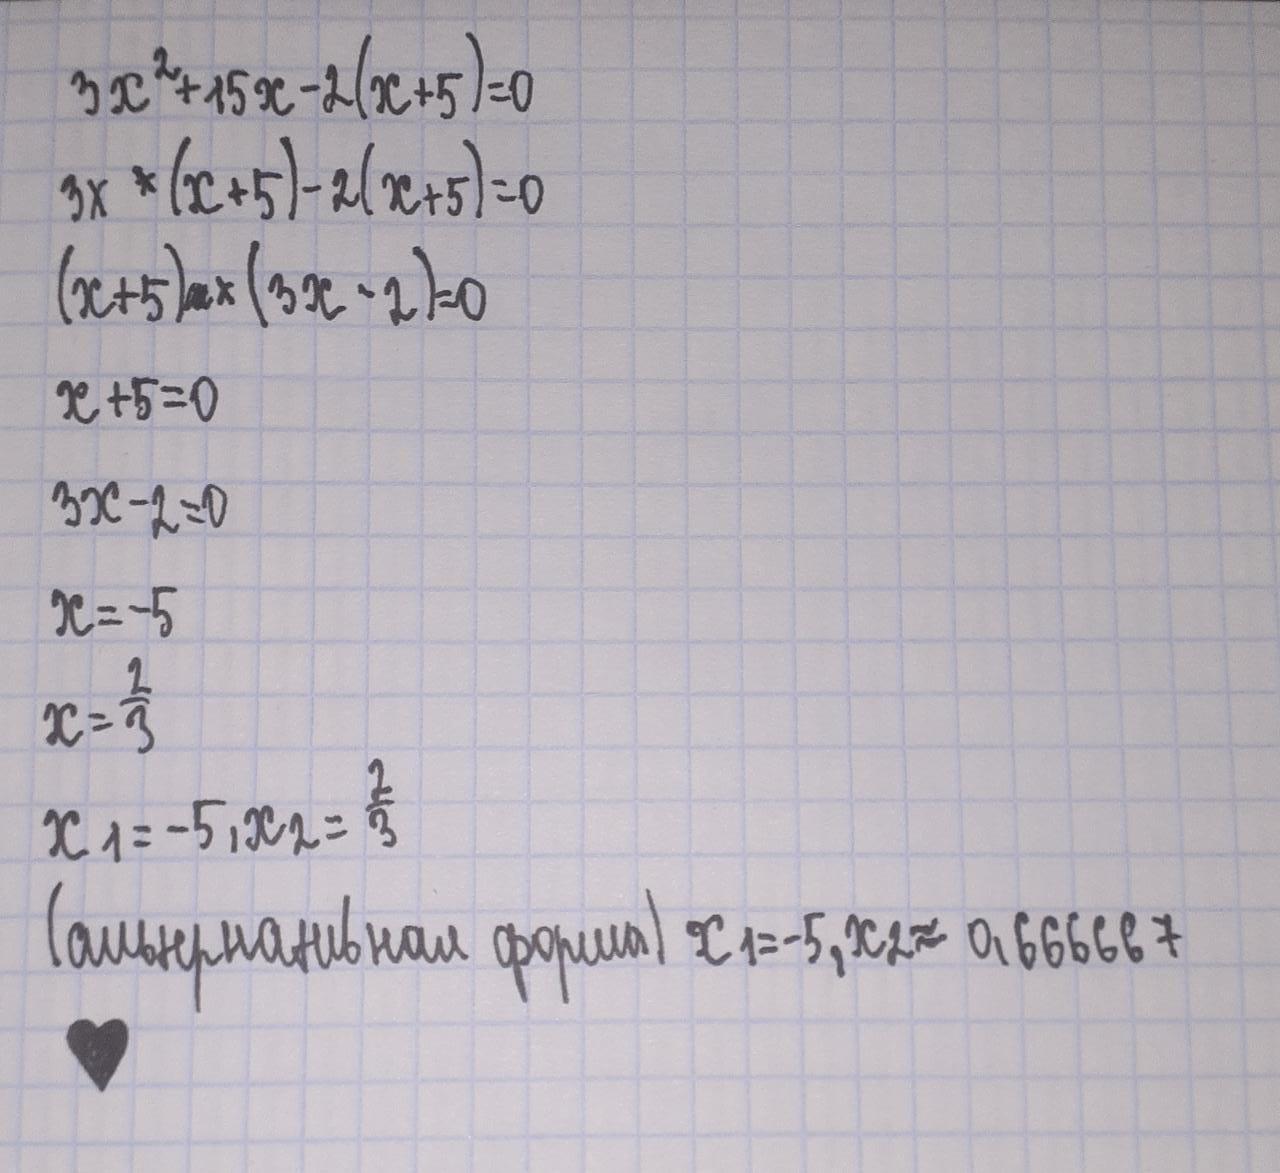 3x²+15x-2(x+5)=0
3x *(x+5)-2(x+5)=0
(x+5)*(3x-2)=0
x+5=0
3x-2=0
x=-5
x=2/3
x1=-5,x2=2/3
(альтернативная форма) x1=-5,x2≈ 0,666667